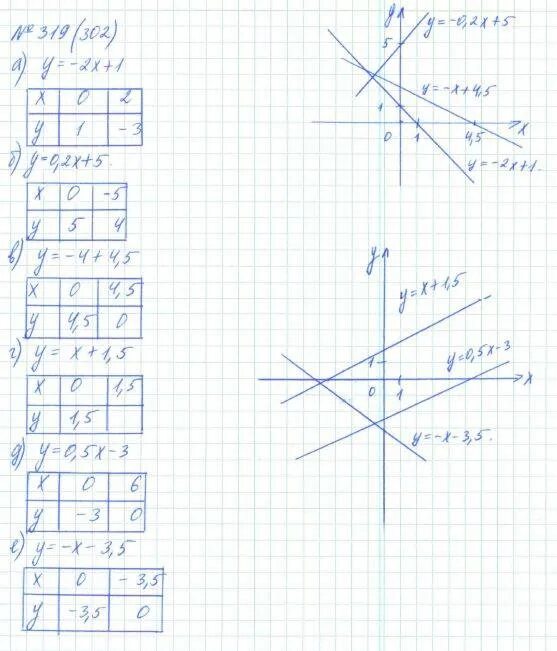 № 319 (302)
а) y = -2x+1
x 0 2
y 1 -3
б) y=0,2x+5.
x 0 -5
y 5 4
в) y = -4 + 4,5
x 0 4,5
y 4,5 0
г) y = x + 1,5
x 0 1,5
y 1,5
д) y = 0,5x - 3
x 0 6
y -3 0
е) y = -x - 3,5
x 0 -3,5
y -3,5 0
y
y = -0,2x+5
5
y = -x+4,5
1
x
0 1 4,5
y = -2x+1.
y
y = x+1,5
y=0,5x-3
1
0 1 x
y = -x-3,5.